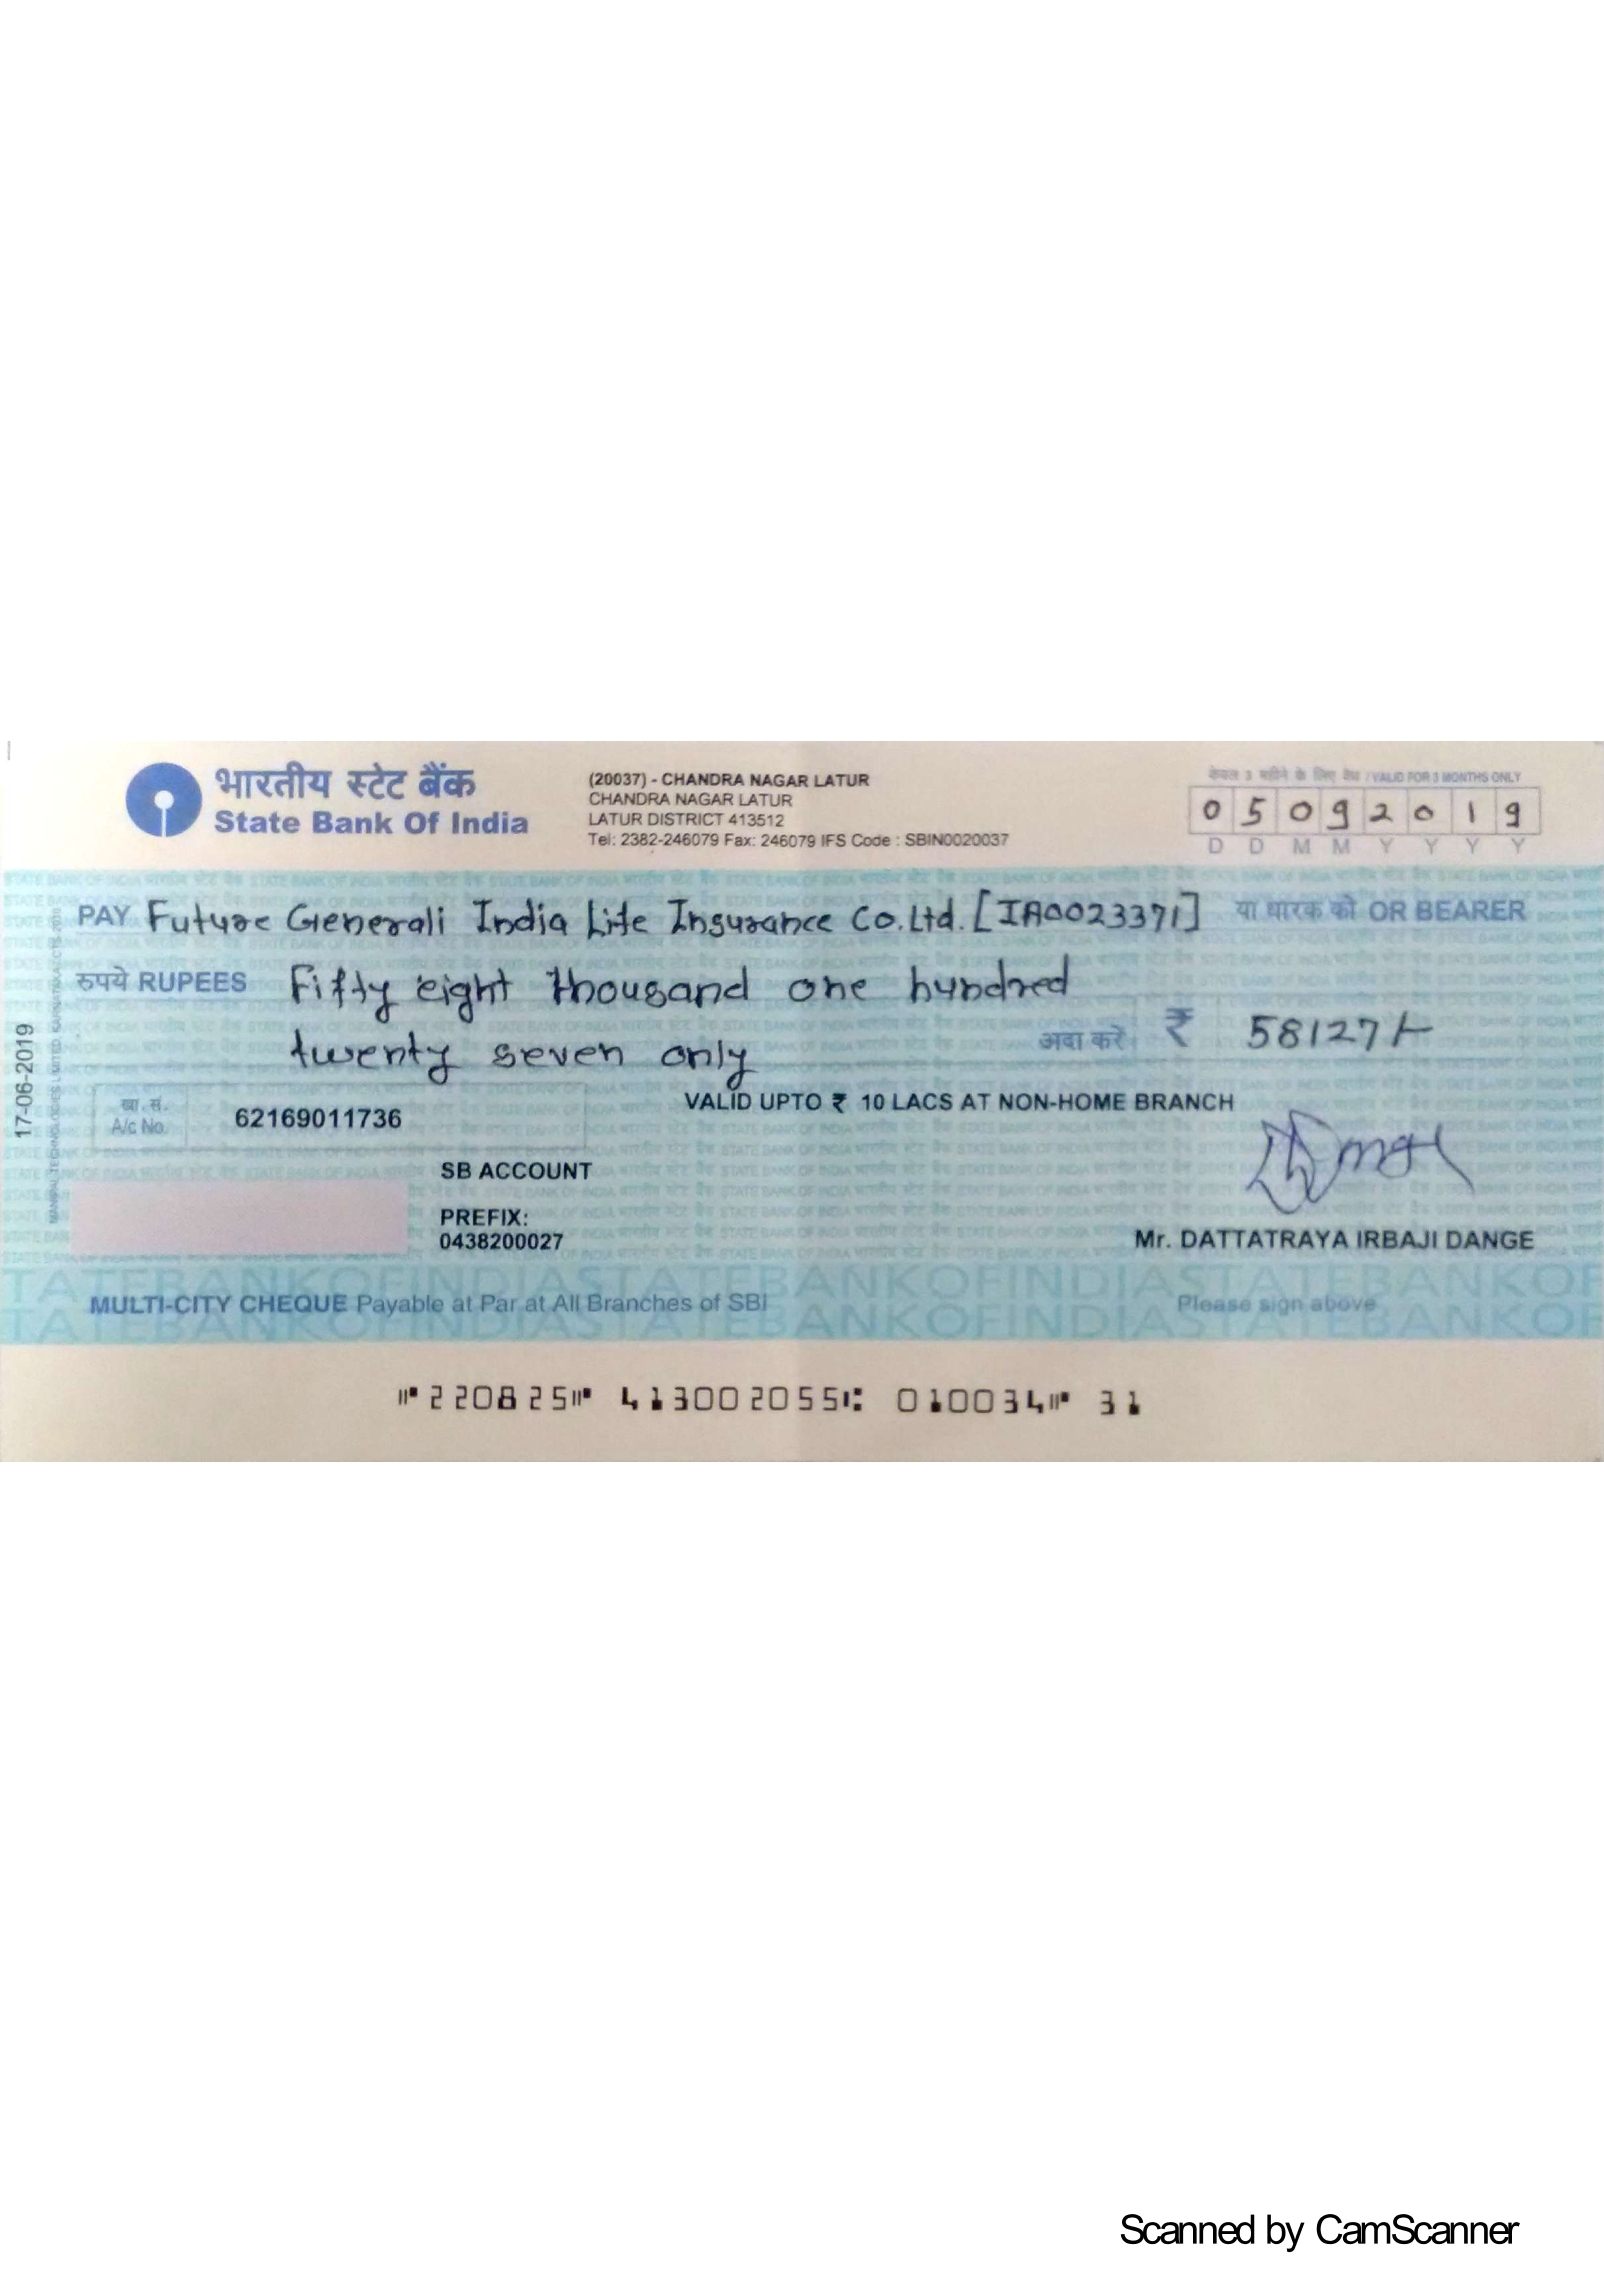 भारतीय स्टेट बैंक
State Bank Of India
(20037) - CHANDRA NAGAR LATUR
CHANDRA NAGAR LATUR
LATUR DISTRICT 413512
Tel: 2382-246079 Fax: 246079 IFS Code : SBIN0020037
केवल 3 महीने के लिए वैध / VALID FOR 3 MONTHS ONLY
0 5 0 9 2 0 1 9
D D M M Y Y Y Y
PAY Future Generali India Life Insurance Co.Ltd. [IA0023371] या धारक को OR BEARER
रुपये RUPEES Fifty eight thousand one hundred
twenty seven only
अदा करें ₹ 58127/-
17-06-2019
खा. सं.
A/c No.
62169011736
VALID UPTO ₹ 10 LACS AT NON-HOME BRANCH
SB ACCOUNT
PREFIX:
0438200027
Mr. DATTATRAYA IRBAJI DANGE
MULTI-CITY CHEQUE Payable at Par at All Branches of SBI
Please sign above
⑈220825⑈ 413002055⑆ 010034⑈ 31
Scanned by CamScanner